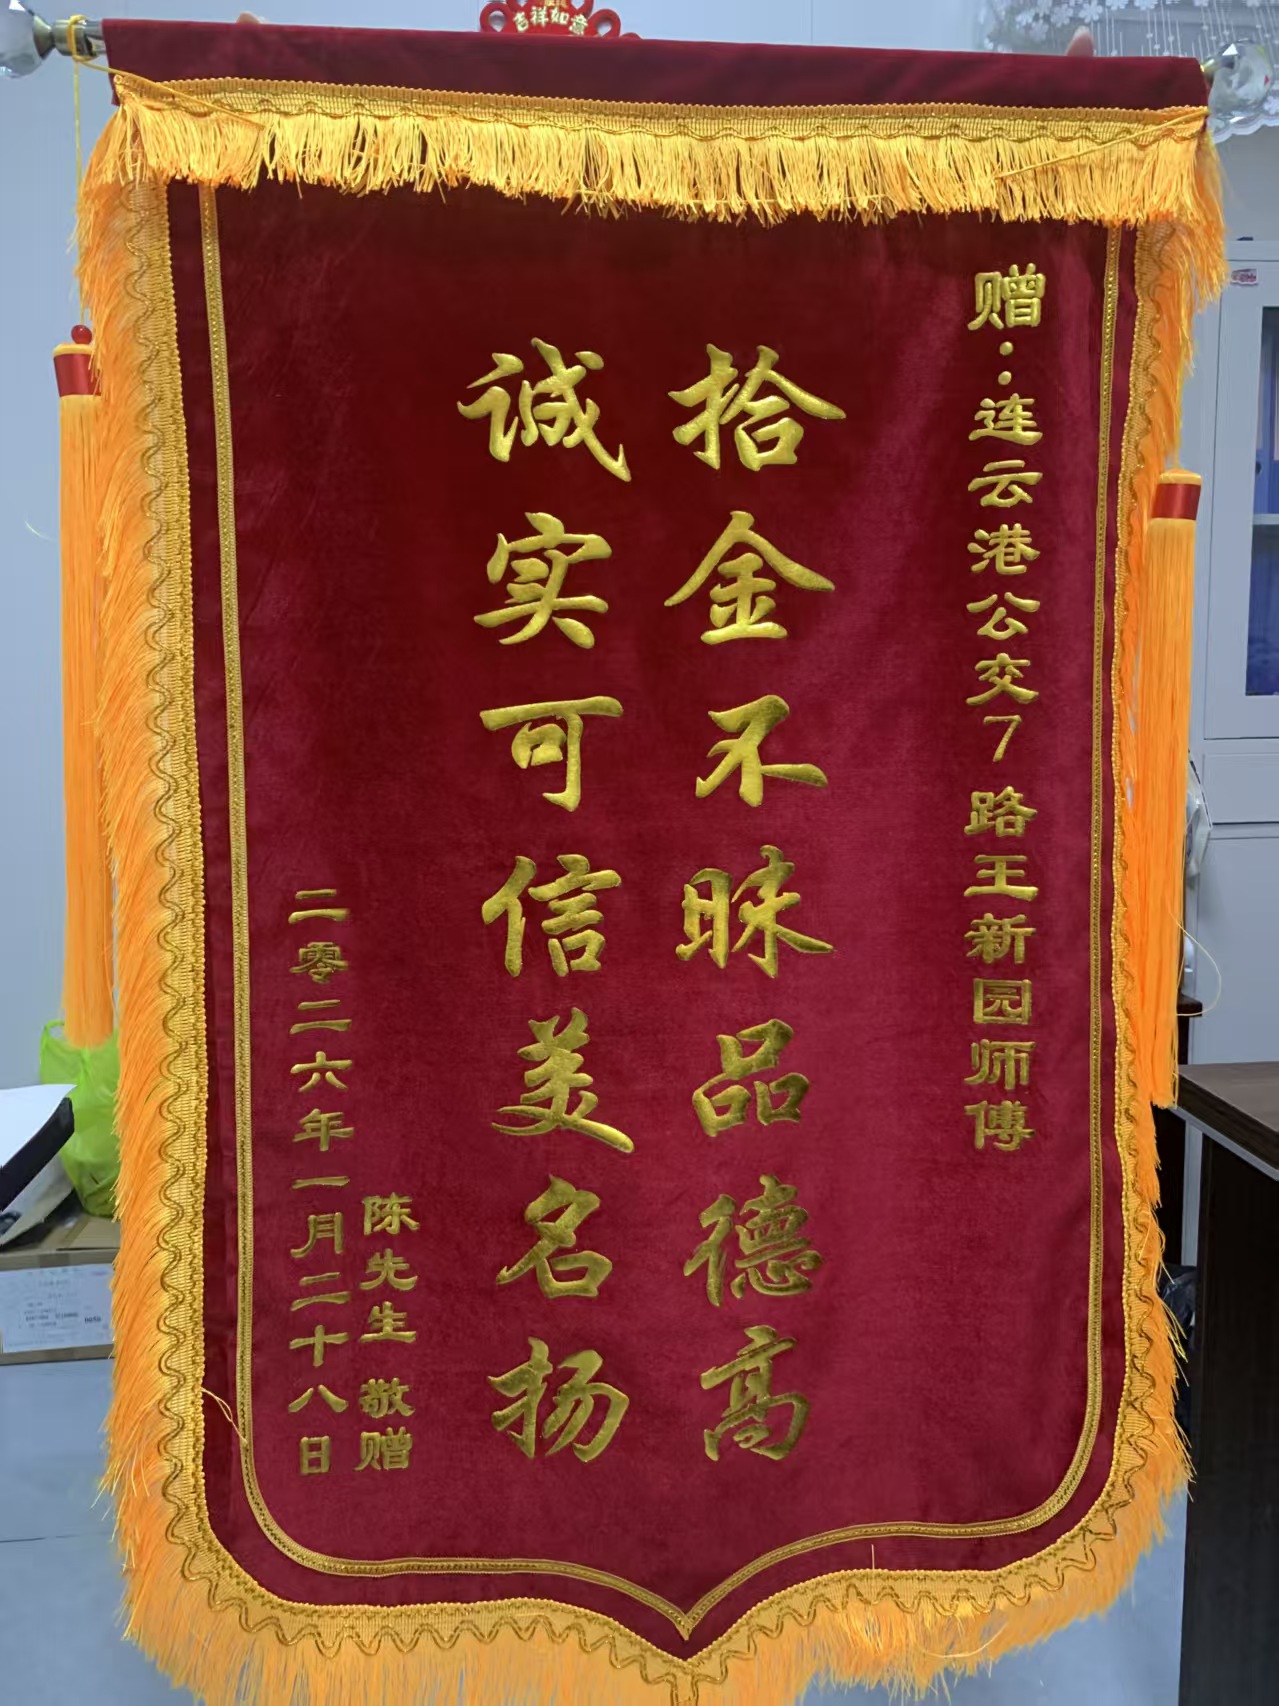 吉祥如意
赠：连云港公交7路王新园师傅
拾金不昧品德高
诚实可信美名扬
陈先生 敬赠
二零二六年一月二十八日